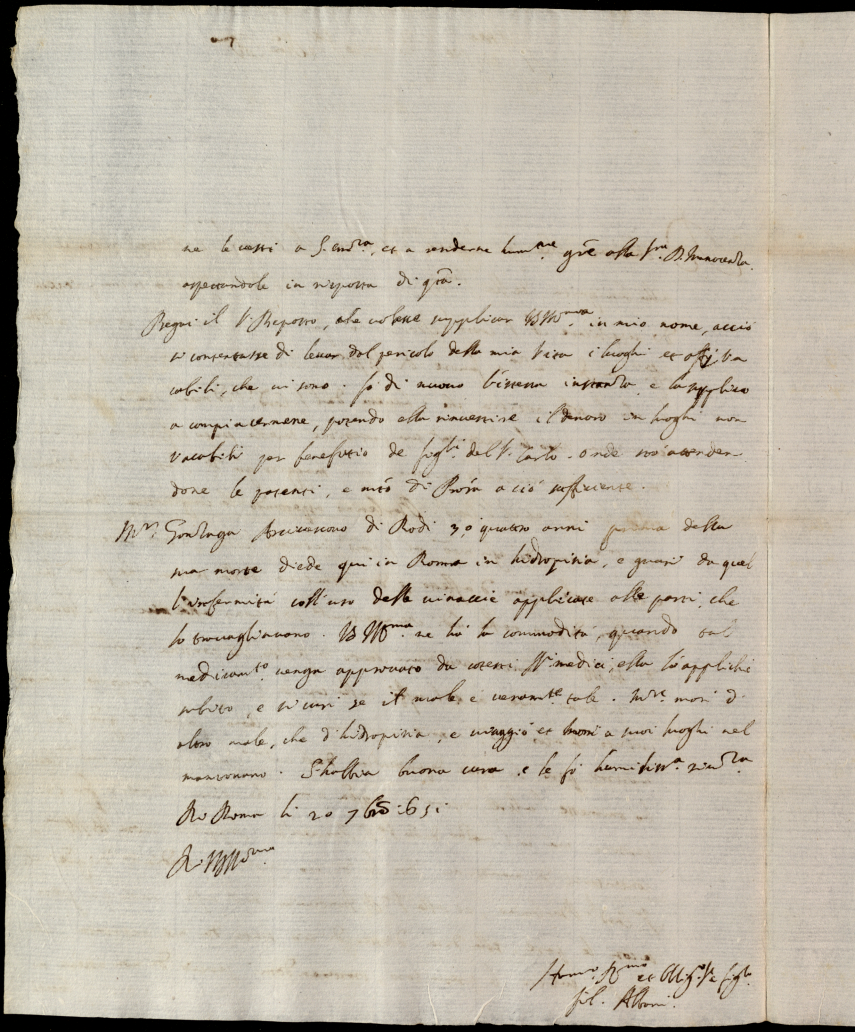 ne le vesti a S. Em.za, et a renderne hum.te gr̄e alla S.ra D. Innocenza
aspettandole in risposta di q̄ta.
Pregai il S. Preposto, che volesse supplicar VS Ill.ma in mio nome, acciò
si contentasse di levar dal pericolo della mia vita i luoghi et offitij va
cabili, che vi sono. Fò di nuovo l'istessa instanza, e la supplico
a compiacermene, potendo ella rinvestire il denaro in luoghi non
vacabili per benefitio de figli del S. Carlo. Onde stò attenden
done le patenti, e mnd̄o di Pro̅ra a ciò sufficiente.
M.r Gonzaga Arcivescovo di Rodi 3, ò quattro anni prima della
sua morte diede qui in Roma in hidropisia, e guarì da quel
l'infermità coll'uso delle vinaccie applicate alle parti, che
lo travagliavano. VS Ill.ma ne ha la commodità, quando tal
medicam.to venga approvato da cotesti SS.ri medici, ella lo applichi
subito, e si curi se il male è veram.te tale. M.re morì d'
altro male, che d'hidropisia, e viaggiò et morì a suoi luoghi nel
mantovano. S'habbia buona cura, e le fò humiliss.a riv.za
Di Roma li 20 7bre 1651
Di VS Ill.ma
Hum.o Dev.mo et Obblig.mo Se. figlo
fil. Alberni